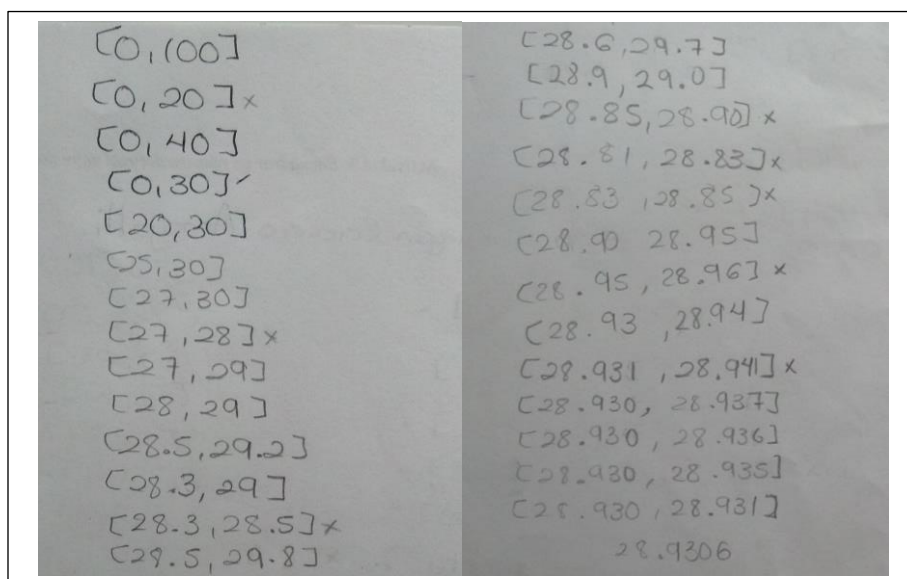 [0,100]
[0,20] x
[0,40]
[0,30]
[20,30]
[25,30]
[27,30]
[27,28] x
[27,29]
[28,29]
[28.5,29.2]
[28.3,29]
[28.3,28.5] x
[28.5,29.8]
[28.6,29.7]
[28.9,29.0]
[28.85,28.90] x
[28.81,28.83] x
[28.83,28.85] x
[28.90 28.95]
[28.95,28.96] x
[28.93,28.94]
[28.931,28.941] x
[28.930,28.937]
[28.930,28.936]
[28.930,28.935]
[28.930,28.931]
28.9306